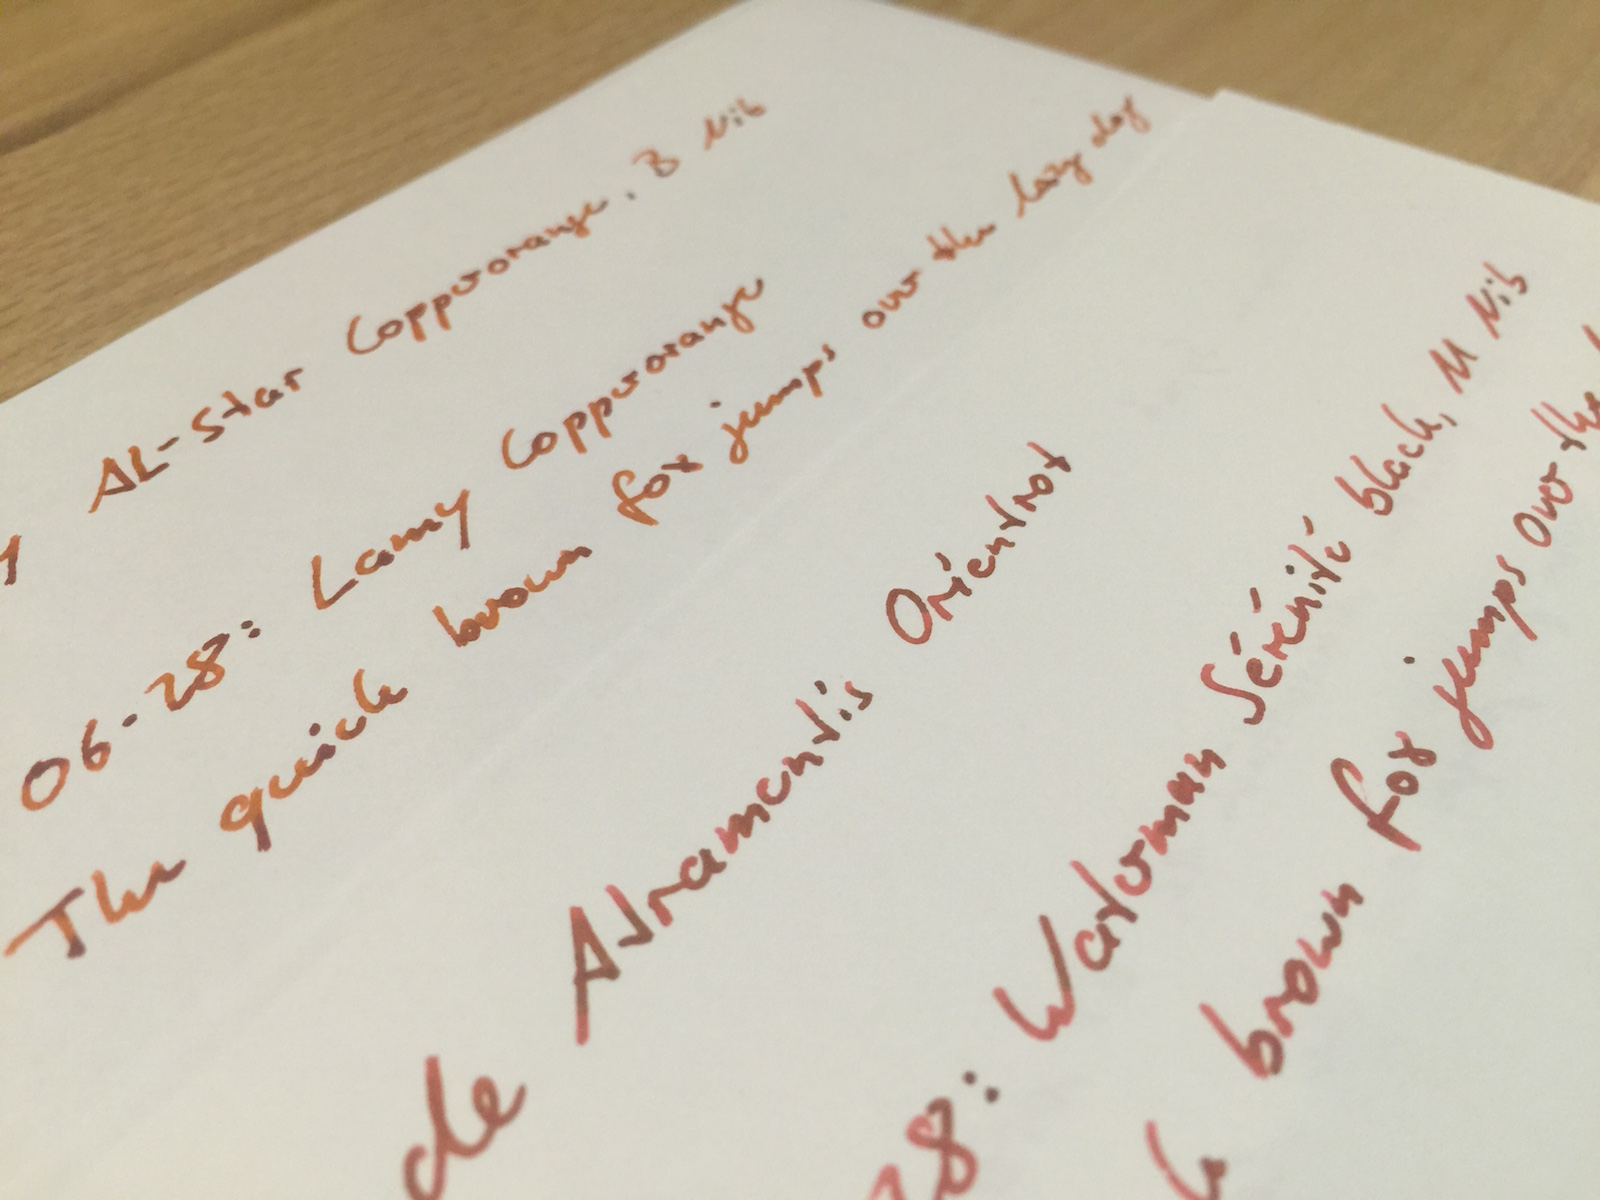 y AL-Star Copperorange, B Nib
06-28: Lamy Copperorange
The quick brown fox jumps over the lazy dog
de Atramentis Orientrot
28: Waterman Sérénité black, M Nib
k brown fox jumps over the